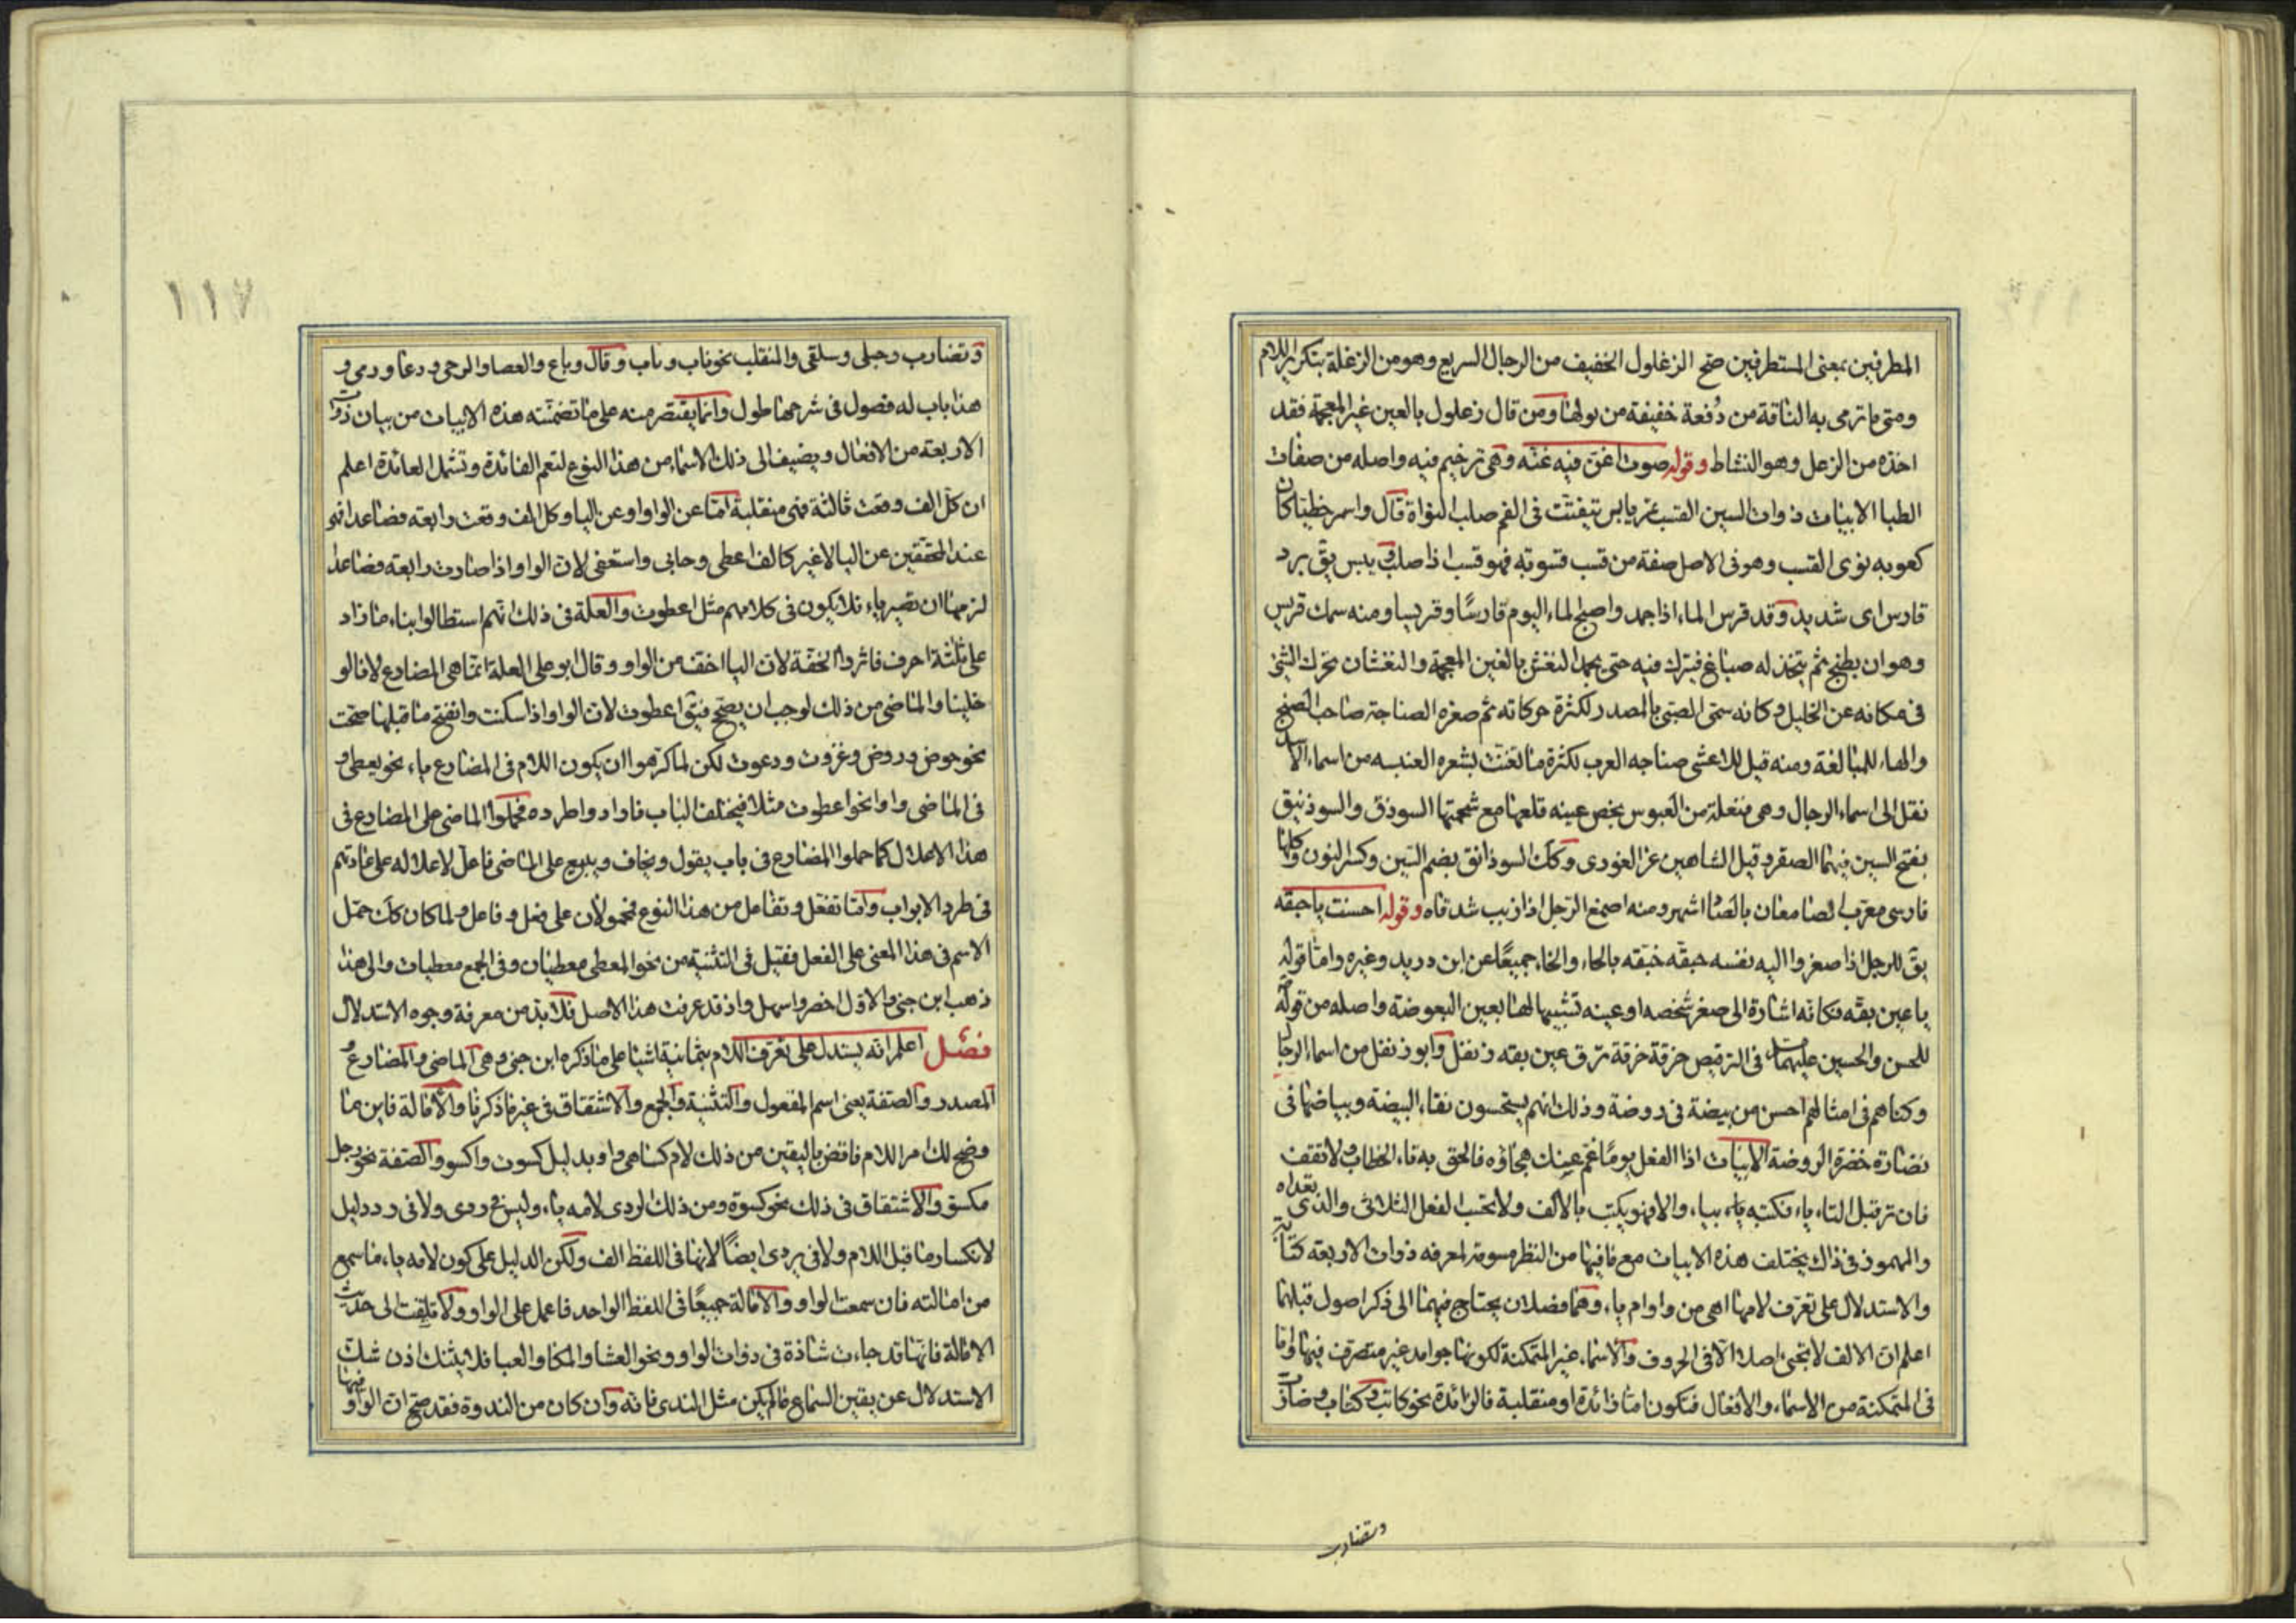 المطرفين بمعنى المستطرفين صح الزغلول الخفيف من الرجال السريع وهو من الزغلة بتكرير اللام
ومتى ما ترمى به الناقة من دُفعة خفيفة من بولها ومن قال زعلول بالعين غير المعجمة فقد
اخذه من الزعل وهو النشاط وقوله صوت اغن فيه غنّه وهى ترخيم فيه واصله من صفات
الظبا الابيات ذوات السين القسب تمر يابس يتفتت فى الفم صلب النواة قال واسمر خطيّا كان
كعوبه نوى القسب وهو فى الاصل صفة من قسب قسوبة فهو قسب اذا صلب ويبس يقّ برد
قارس اى شديد وقد قرس الماء اذا جمد واصبح الماء اليوم قارسًا وقريسا ومنه سمك قريس
وهو ان يطبخ ثم يتخذ له صباغ فيترك فيه حتى يجمد النغش بالغين المعجمة والنغشان تحرك الشئ
فى مكانه عن الخليل وكانه سمّى الصبّى بالمصدر لكثرة حركاته ثم صغره الصناجة صاحب الصنج
والهاء للمبالغة ومنه قيل للاعشى صناجه العرب لكثرة ما تغنت بشعره العنبسه من اسماء الاسد
نقل الى اسماء الرجال وهى فنعلة من العبوس بخص عينه قلعها مع شحمتها السوذق والسوذنيق
بفتح السين فيهما الصقر وقيل الشاهين عن الغورى وكك السوذانق بضم السين وكسر النون وكلها
فارسى معرب الصنا معان بالصا اشهر ومنه اصمغ الرجل اذا زبب شدقاه وقوله احسنت يا حبقه
يقّ للرجل اذا صغروا اليه نفسه حبقّه خبّقه بالحاء والخاء جميعًا عن ابن دريد وغيره واما قوله
يا عين بقّه فكانه اشارة الى صغر شخصه او عينه تشبيها لها بعين البعوضة واصله من قولهم
للحسن والحسين عليهما فى الترقيص حزقة حزقة ترق عين بقه ذ نفل وابو ذ نفل من اسماء الرجا
وكناهم فى امثالهم احسن من بيضة فى روضة وذلك انهم يستحسون نقاء البيضة وبياضها فى
نضارة خضرة الروضة الابيات اذا الفعل يومًا غم عينك هجاؤه فالحق به تاء الخطاب ولا تقف
فان تر قبل التاء ياء فكتبه ياء بياء والا فهو يكتب بالالف ولا تحسب الفعل الثلاثى والذى تعداه
والمهموز فى ذاك يختلف هذه الابيات مع ما فيها من النظر مسوقة لمعرفه ذوات الاربعه كتابة
والاستدلال على تعرّف لامها اهى من واو ام ياء وهما فصلان يحتاج فيهما الى ذكر اصول قبلهما
اعلم ان الالف لا تجئ اصلا الا فى الحروف والاسماء غير المتمكنة لكونها جوامد غير متصرف فيها واما
فى المتمكنة من الاسماء والافعال فتكون اما زائدة او منقلبة فالزائدة نحو كاتب وكتاب وضارب
وتضارب
١١٧
وتضارب وحبلى وسلقى والمنقلب نحو ناب وباب وقال وباع والعصا والرحى ودعا ورمى و
هذا باب له فصول فى شرحها طول وانما يقتصر منه على ما تضمنّته هذه الابيات من بيان ذوات
الاربعة من الافعال ويضيف الى ذلك الاسماء من هذا النوع لتعم الفائدة وتشمل العائدة اعلم
ان كل الف وقعت ثالثة فهى منقلبة امّا عن الواو او عن اليا وكل الف وقعت رابعه فصاعدا فهو
عند المحققين عن اليا لا غير كالف اعطى وحابى واستعفى لان الواو اذا صارت رابعة فصاعدا
لزمها ان تصير ياء فلا يكون فى كلامهم مثل اعطوت والعلة فى ذلك انهم استطالوا بناء ما زاد
على ثلثة احرف فاثروا الخفّة لان اليا اخف من الواو وقال ابو على العلة انما هى المضارع لانا لو
خلينا والماضى من ذلك لوجب ان يصّح فيقّ اعطوت لان الواو اذا سكنت وانفتح ما قبلها صحت
نحو حوض وروض وغزوت ودعوت لكن لما كرهوا ان يكون اللام فى المضارع ياء نحو يعطى و
فى الماضى واوا نحو اعطوت مثلا فيختلف الباب فارادوا طرده فحملوا الماضى على المضارع فى
هذا الاعلال كما حملوا المضارع فى باب يقول ويخاف ويبيع على الماضى فاعلّ لاعلاله على عادتهم
فى طرد الابواب واما تفعّل وتفاعل من هذا النوع فمحمولان على فعل وفاعل ولما كان كك حمل
الاسم فى هذا المعنى على الفعل فقيل فى التثنية من نحو المعطى معطيان وفى الجمع معطيات والى هذا
ذهب ابن جنى والاول اخصر واسهل واذ قد عرفت هذا الاصل فلا بد من معرفة وجوه الاستدلال
فصل اعلم انه يستدل على تعرّف اللام بثمانية اشيا على ما ذكره ابن جنى وهى الماضى والمضارع و
المصدر والصفة يعنى اسم المفعول والتثنية والجمع والاشتقاق فى غير ما ذكرنا والامالة فاين ما
وضح لك امر اللام فاقض باليقين من ذلك لام كسا هى واو بدليل كسوت واكسو والصفة نحو رجل
مكسوّ والاشتقاق فى ذلك نحو كسوة ومن ذلك الردى لامه ياء وليس فى ردى ولا فى رد دليل
لانكسار ما قبل اللام ولا فى يردى ايضًا لانها فى اللفظ الف ولكن الدليل على كون لامه ياء ما سمع
من امالته فان سمعت الواو والامالة جميعًا فى اللفظ الواحد فاعمل على الواو ولا تلتفت الى حديث
الامالة فانّها قد جاءت شاذة فى ذوات الواو ونحو العشا والمكا والعبا فلا يثنك اذن شك
الاستدلال عن يقين السماع فالم يكن مثل الندى فانه وان كان من الندوة فقد صح ان الواو فيها